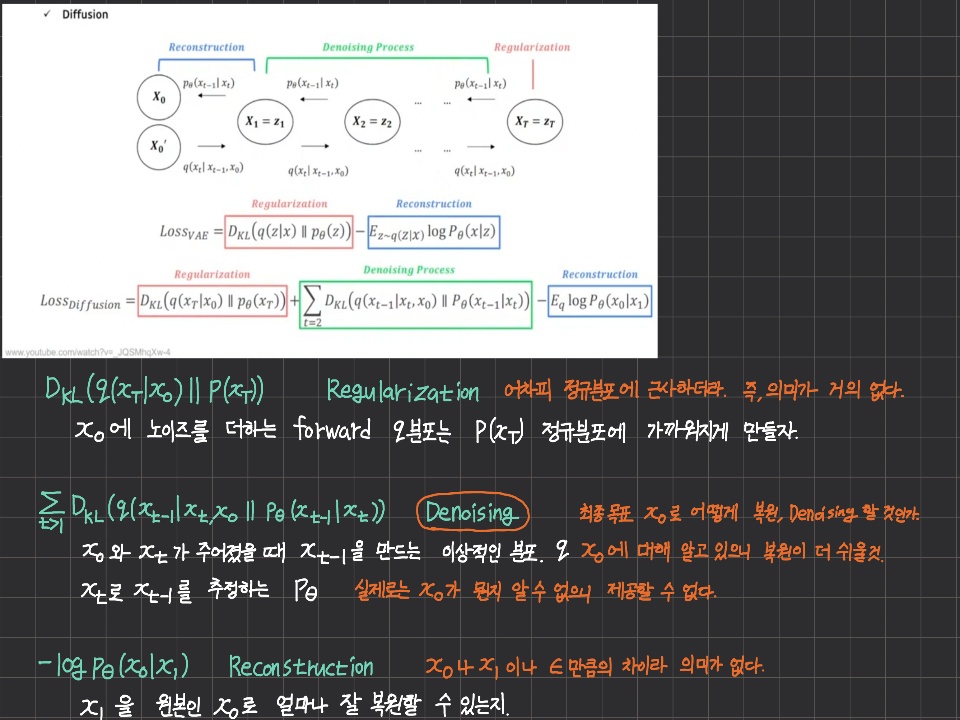 ✓ Diffusion
Reconstruction Denoising Process Regularization
pθ(xt−1|xt) pθ(xt−1|xt) pθ(xt−1|xt)
X0 X1 = z1 X2 = z2 ... ... XT = zT
X0' ... ...
q(xt|xt−1,x0) q(xt|xt−1,x0) q(xt|xt−1,x0)
Regularization Reconstruction
LossVAE = DKL(q(z|x) ∥ pθ(z)) − Ez~q(Z|X) log Pθ(x|z)
Regularization Denoising Process Reconstruction
LossDiffusion = DKL(q(xT|x0) ∥ pθ(xT)) + ∑t=2 DKL(q(xt−1|xt,x0) ∥ Pθ(xt−1|xt)) − Eq log Pθ(x0|x1)
www.youtube.com/watch?v=_JQSMhqXw-4
DKL(q(xT|x0) || P(xT)) Regularization 어차피 정규분포에 근사하더라. 즉, 의미가 거의 없다.
x0에 노이즈를 더하는 forward q분포는 P(xT) 정규분포에 가까워지게 만들자.
∑t>1 DKL(q(xt−1|xt,x0 || Pθ(xt−1|xt)) Denoising 최종목표 x0로 어떻게 복원, Denoising 할 것인가.
x0와 xt가 주어졌을 때 xt−1을 만드는 이상적인 분포. q x0에 대해 알고 있으니 복원이 더 쉬울것.
xt로 xt−1를 추정하는 Pθ 실제로는 x0가 뭔지 알 수 없으니 제공할 수 없다.
−log Pθ(x0|x1) Reconstruction x0나 x1이나 ∈만큼의 차이라 의미가 없다.
x1을 원본인 x0로 얼마나 잘 복원할 수 있는지.